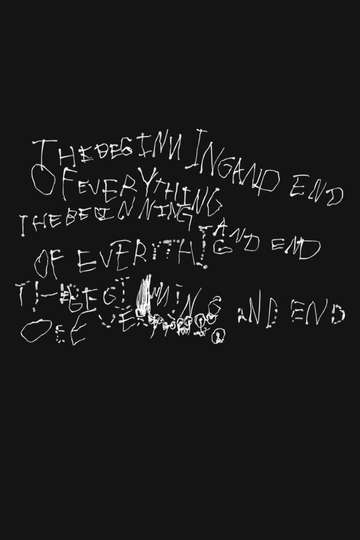 THEBEGINN INGAND END
OFEVERYTHING
THEBEGINNING AND END
OF EVERITHIG
THEBEGINNING AND END
OF EVE